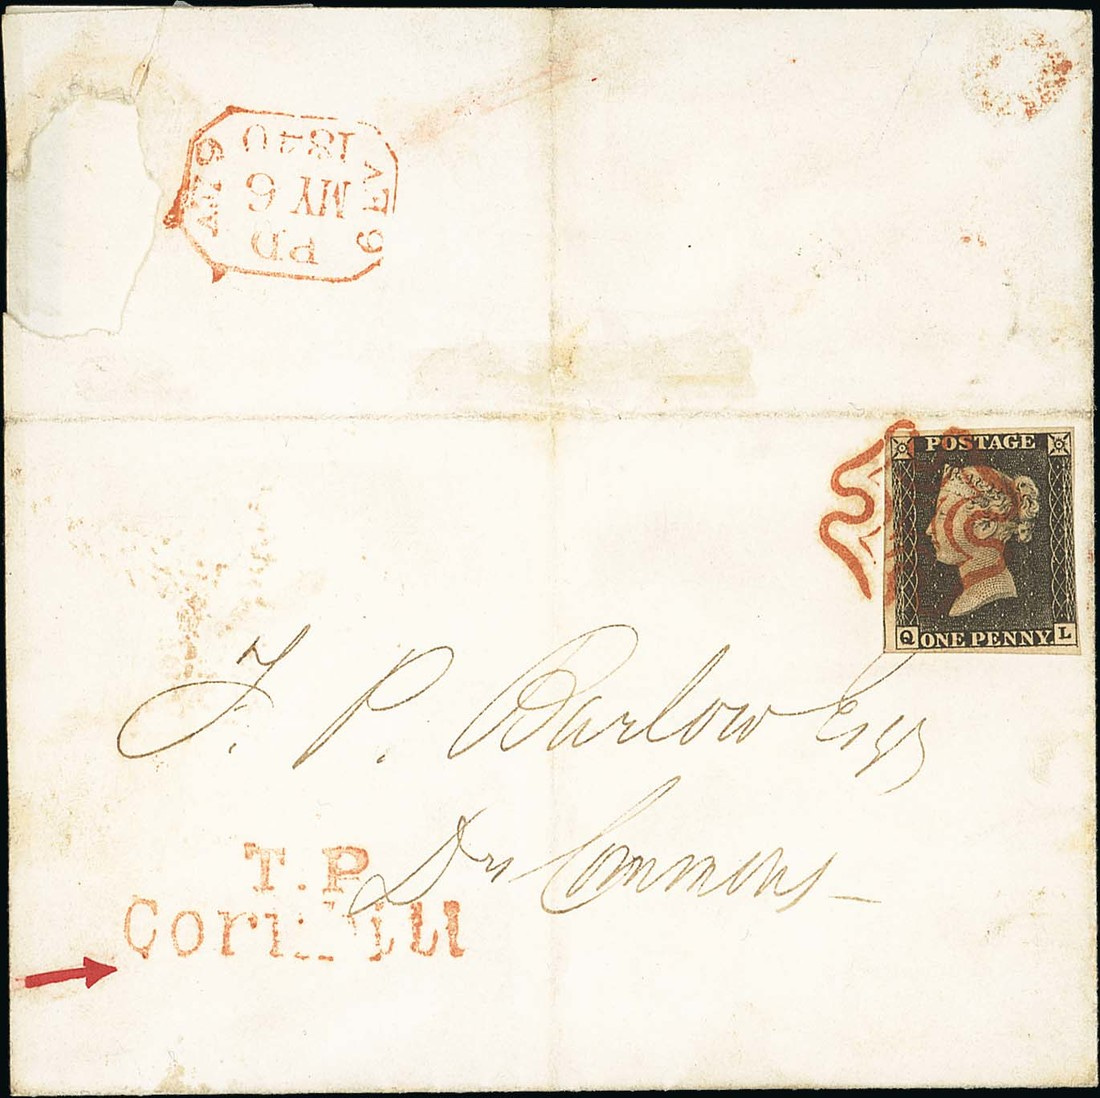 1840
MY 6
PD
POSTAGE
Q ONE PENNY L
F. P. Barlow Esq
Drs Commons
T.P
Cornhill